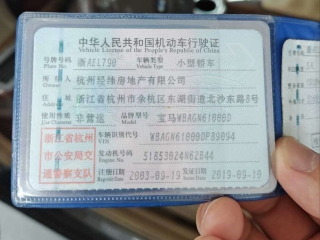 中华人民共和国机动车行驶证
Vehicle License of the People's Republic of China
号牌号码 浙AEL790 车辆类型 小型轿车
Plate No. Vehicle Type
所有人 杭州经纬房地产有限公司
Owner
住址 浙江省杭州市余杭区东湖街道北沙东路8号
Address
使用性质 非营运 品牌型号 宝马WBAGN61000D
Use Character Model
浙江省杭州 车辆识别代号 WBAGN61000DP89094
VIN
市公安局交 发动机号码 51853024N62B44
Engine No.
通警察支队 注册日期 2003-09-19 发证日期 2019-09-10
Register Date Issue Date